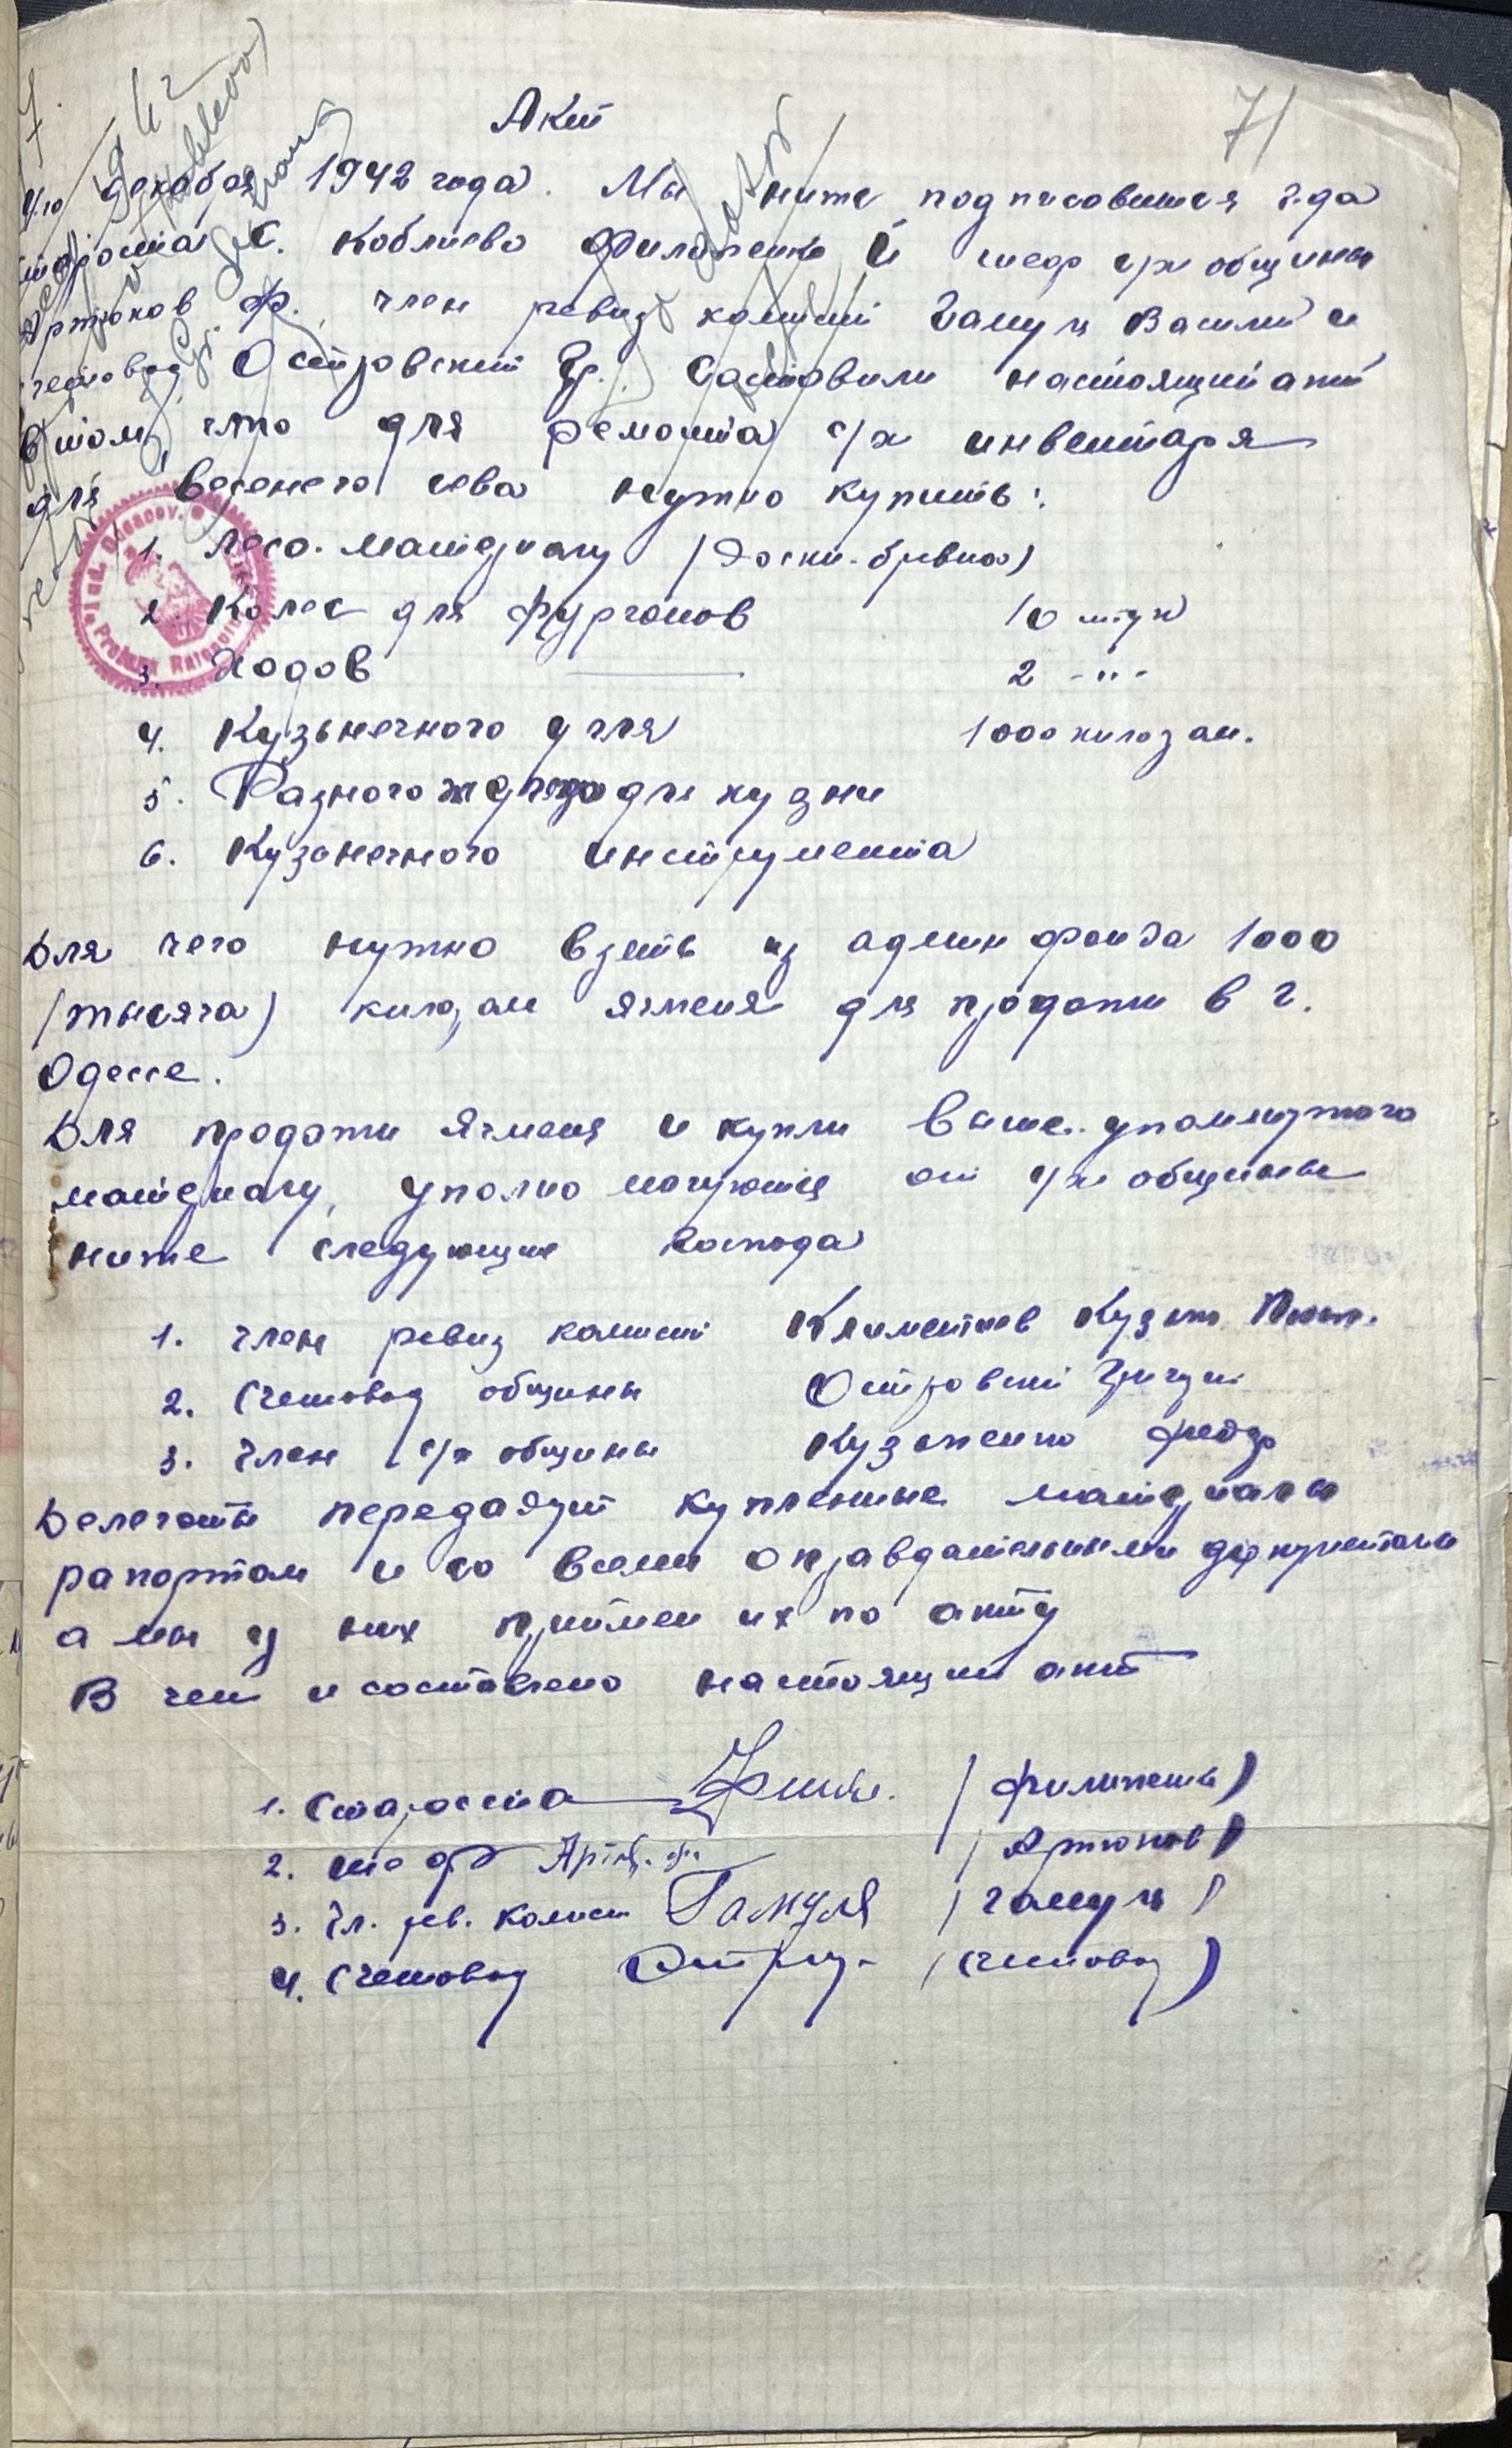 71
Акт
декабря 1942 года. Мы ниже подписовшися г-да
староста с. Коблиево Филипенко и шеф с/х общины
Артюков Ф., член ревиз комисии Гамуля Василий и
счетовод Островский Гр. Состовили настоящий акт
в том, что для ремонта с/х инвентаря
для весенего сева нужно купить:
1. Лесо-материалу (Доски-бревна)
2. Колес для фургонов 10 штук
3. Ходов 2 -"-
4. Кузьнечного угля 1000 килогам.
5. Разного для кузни
6. Кузьнечного инструмента
Для чего нужно взять из админ фонда 1000
(тысяча) килогам ячменя для продажи в г.
Одессе.
Для продажи ячменя и купли выше-упомянутого
материалу, уполномочуются от с/х общины
ниже следующие господа
1. Член ревиз комисии Климентьев Кузьма
2. Счетовод общины Островский Григорий
3. Член с/х общины Кузьменко Федор
Делегаты передаяут купленные материалы
рапортом и со всеми оправдательными документами
а мы у них приймем их по акту
В чем и составлено настоящий акт
1. Староста (Филипенко)
2. шеф (Артюков)
3. Чл. рев. Комисии Гамуля (Гамуля)
4. Счетовод (Счетовод)